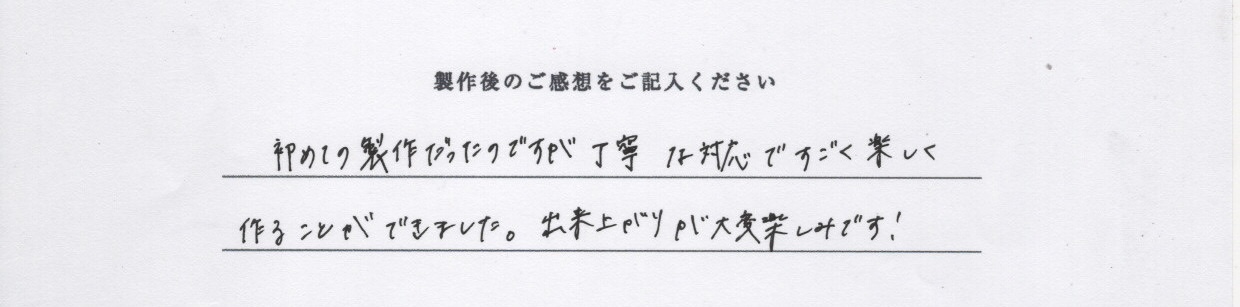 製作後のご感想をご記入ください
初めての製作だったのですが丁寧な対応ですごく楽しく
作ることができました。出来上がりが大変楽しみです!